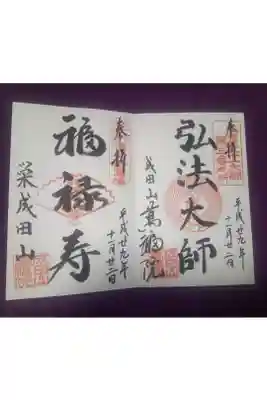 奉拝
弘法大師
成田山萬福院
平成廿九年
十一月廿二日
奉拝
福禄寿
栄成田山
平成廿九年
十一月廿二日